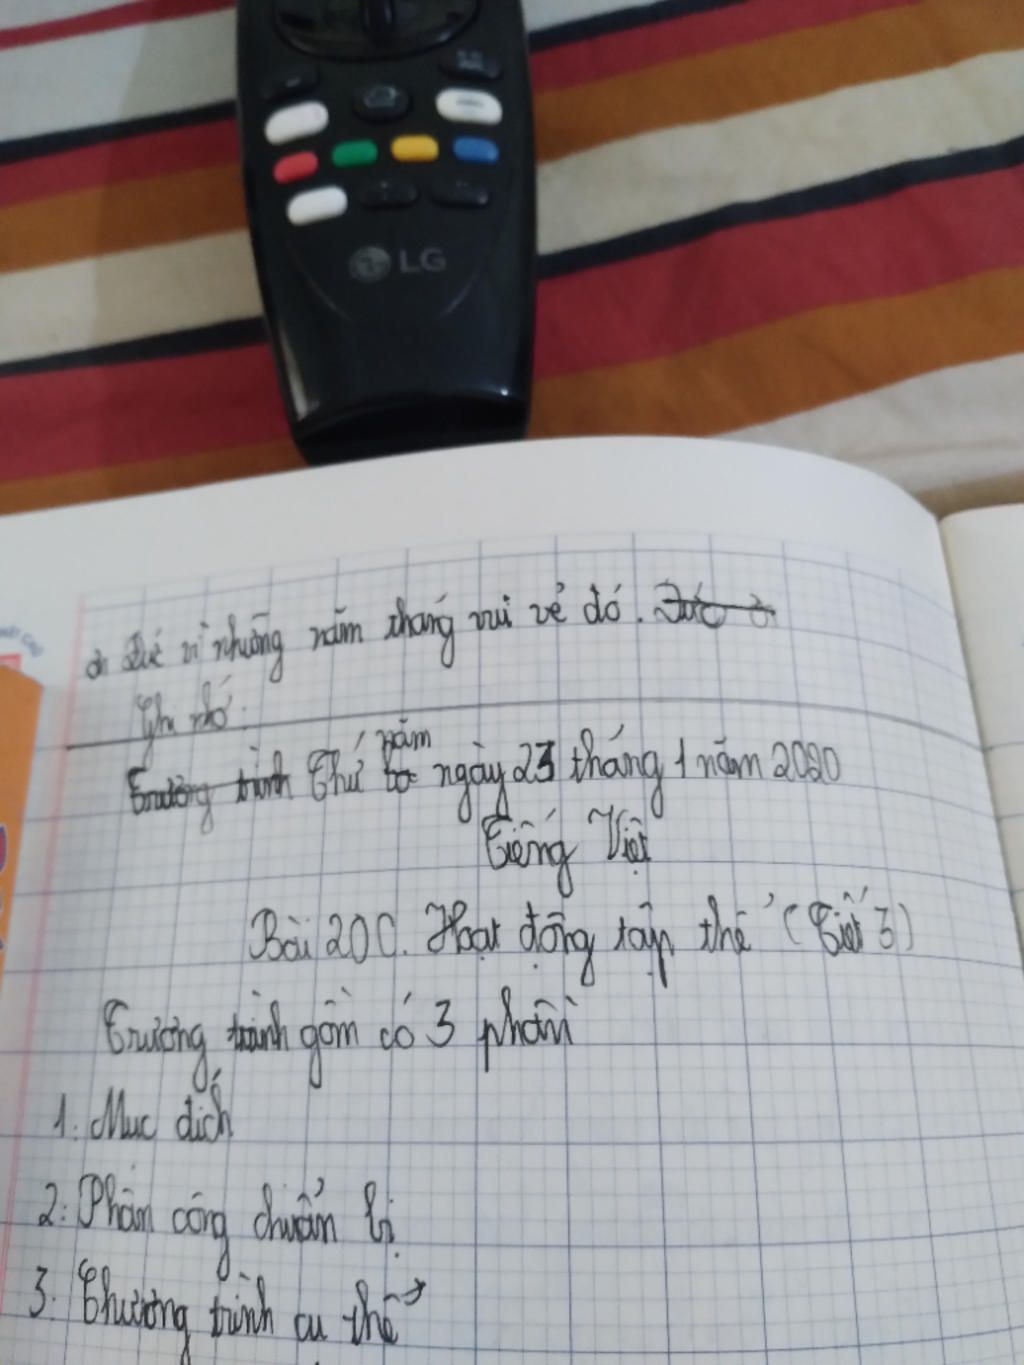 LG
vì những năm tháng vui vẻ đó.
Ghi nhớ:
Trường trình Thứ năm ngày 23 tháng 1 năm 2020
Tiếng Việt
Bài 20C. Hoạt động tập thể (Tiết 3)
Trương trình gồm có 3 phần
1. Mục đích
2. Phân công chuẩn bị
3. Chương trình cụ thể